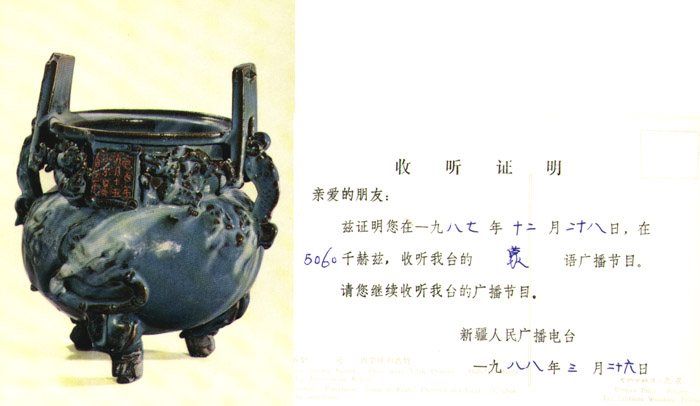 收听证明
亲爱的朋友：
兹证明您在一九八七年十二月二十八日，在
5060千赫兹，收听我台的 蒙 语广播节目。
请您继续收听我台的广播节目。
新疆人民广播电台
一九八八年三月二十六日